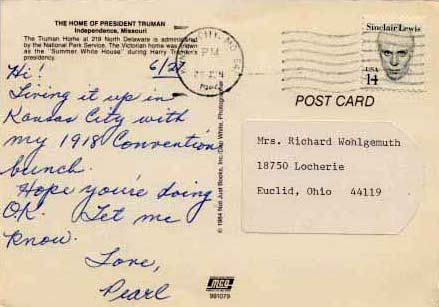 THE HOME OF PRESIDENT TRUMAN
Independence, Missouri
The Truman Home at 219 North Delaware is administered
by the National Park Service. The Victorian home was known
as the "Summer White House" during Harry Truman's
presidency.
6/27
Hi!
Living it up in
Kansas City with
my 1918 Convention
bunch.
Hope you're doing
O.K. Let me
know.
Love,
Pearl
CITY, MO
PM
Sinclair Lewis
USA
14
POST CARD
Mrs. Richard Wohlgemuth
18750 Locherie
Euclid, Ohio 44119
© 1984 Not Just Books, Inc. Dan White, Photographer
MCG
991079